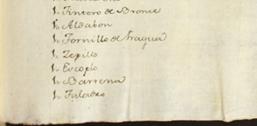 1. Tintero de Bronce
1. Aldabon
1. Tornillo de fragua
1. Zepillo
1. Escoplo
1. Barrena
1. Taladro